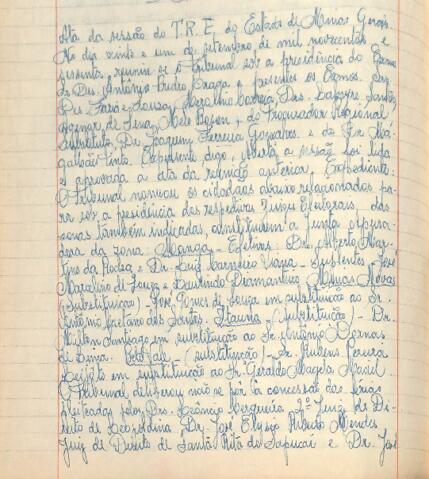 Ata da sessão do T.R.E. do Estado de Minas Gerais.
No dia vinte e um de setembro de mil novecentos e
sessenta, reuniu-se o Tribunal sob a presidência do Exmo
Sr. Des. Antônio Pedro Braga e presentes os Exmos. Srs.
Des. Faria e Sousa, Mergulhão Correia, Drs.
de Lima, Melo e do Procurador Regional
Substituto, Dr. Joaquim Ferreira Gonçalves e do Dr. Ma-
galhães Pinto. Expediente digo, Aberta a sessão foi lida
e aprovada a ata da reunião anterior. Expediente:
O Tribunal nomeou os cidadãos abaixo relacionados pa-
ra sob a presidência dos respectivos Juizes Eleitorais, das
zonas também indicadas, constituirem a Junta apura-
dora da zona Manga - Efetivos: Dr. Alberto Mar-
tins da Rocha e Dr. Luiz Carneiro Viana - Suplentes - José
Marcelino de Souza e Laurindo Diamantino Minas Novas
(Substituição) José Gomes de Souza em substituição ao Sr.
Antônio Caetano dos Santos. Itauna (substituição) - Dr.
Milton Santiago em substituição ao Sr. Antônio Dornas
de Lima. (substituição) - Sr. Rubens Pereira
Peixoto em substituição ao Sr. Geraldo Magela Maciel.
O Tribunal deliberou não se pôr à concessão das férias
pleiteadas pelos Drs. Cerqueira, 2º Juiz de Di-
reito de Leopoldina, Dr. José Elysio Alberto Mendes
Juiz de Direito de Santa Rita do Sapucaí e Dr. José